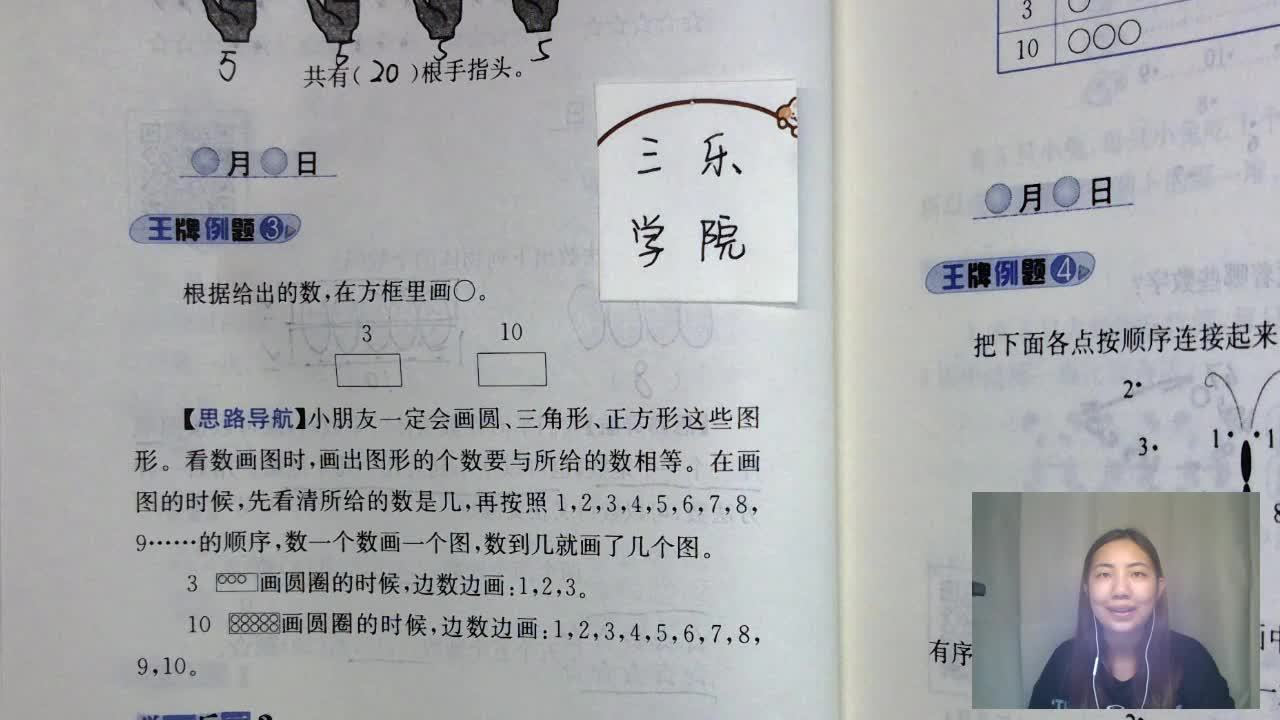 5 5 5 5
共有( 20 )根手指头。
月 日
王牌例题3
根据给出的数,在方框里画○。
3 10
【思路导航】小朋友一定会画圆、三角形、正方形这些图
形。看数画图时,画出图形的个数要与所给的数相等。在画
图的时候,先看清所给的数是几,再按照 1,2,3,4,5,6,7,8,
9……的顺序,数一个数画一个图,数到几就画了几个图。
3 ○○○画圆圈的时候,边数边画:1,2,3。
10 ○○○○○○○○○○画圆圈的时候,边数边画:1,2,3,4,5,6,7,8,
9,10。
三乐
学院
3 ○
10 ○○○
月 日
王牌例题4
把下面各点按顺序连接起来
2
3
1 1
8
有序